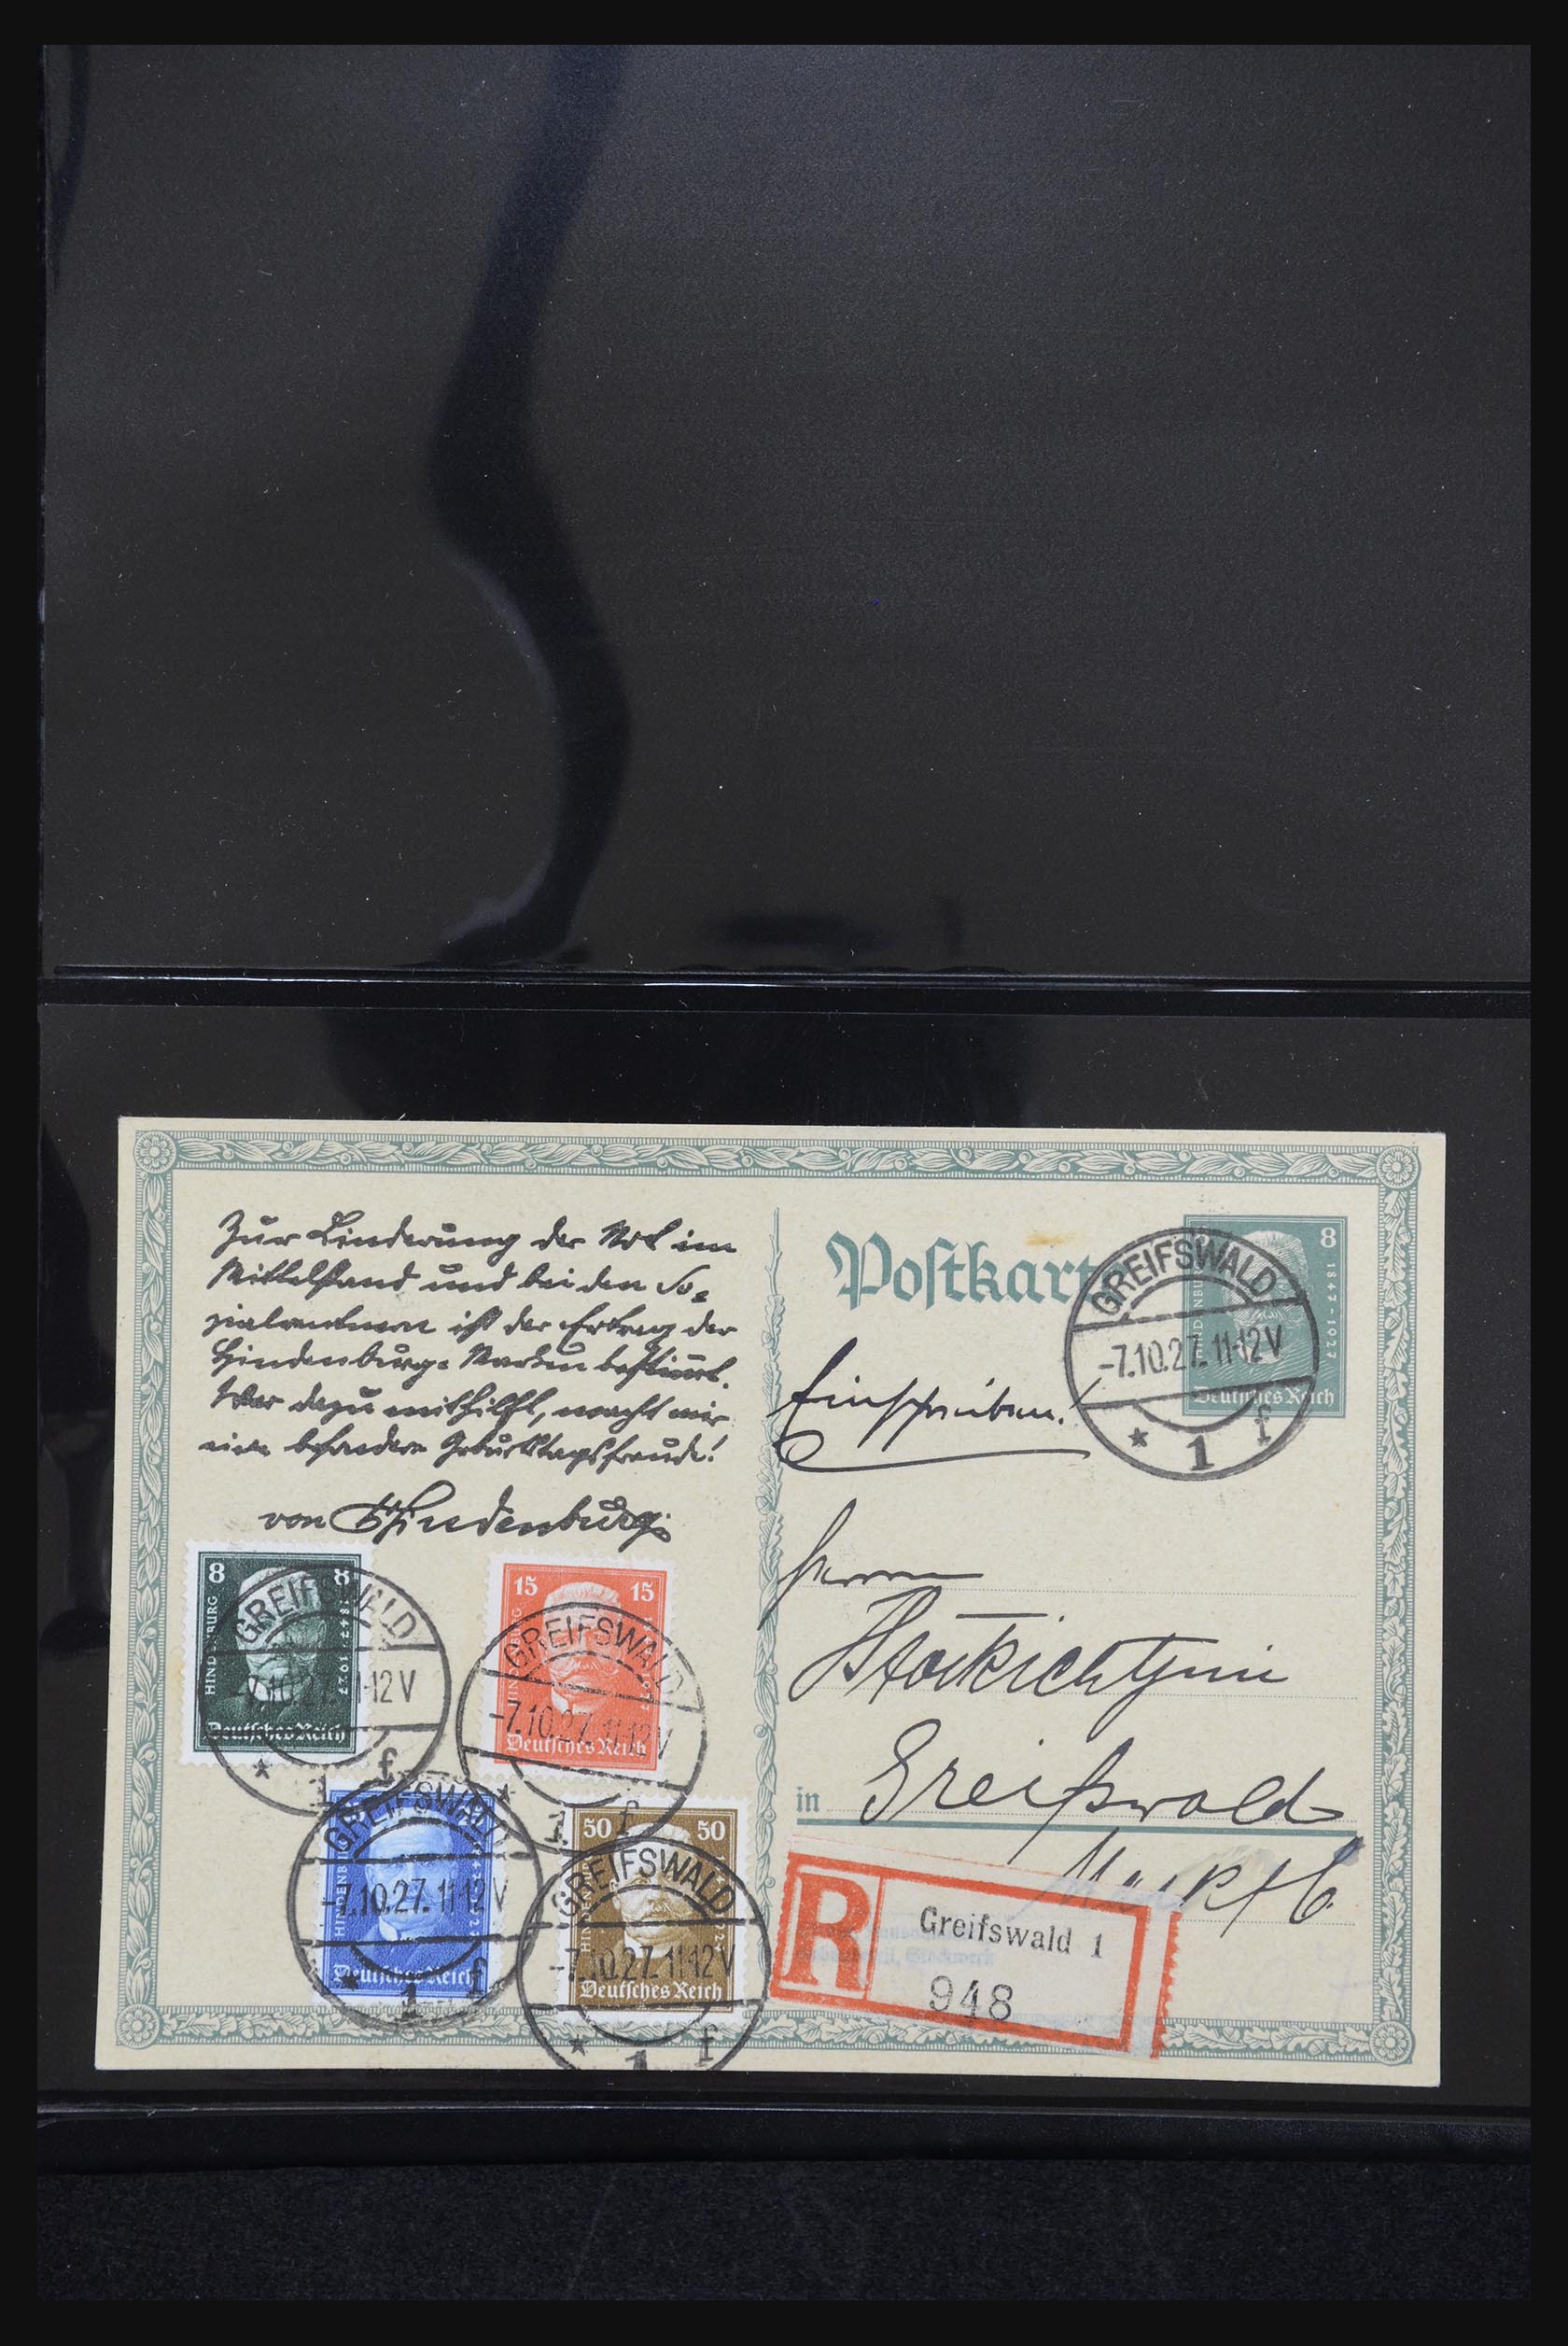 Zur Linderung der Not im
Mittelstand und bei den So=
zialrentnern ist der Ertrag der
Hindenburg= Marken bestimmt.
Wer dazu mithilft, macht mir
eine besondere Geburtstagsfreude!
von Hindenburg.
Postkarte
8
1847·1927
Deutsches Reich
GREIFSWALD
-7.10.27.11-12V
* 1 f
Einschreiben!
Herrn
in Greifswald
Markt 6.
R
Greifswald 1
948
8 8
HINDENBURG
1847-1927
Deutsches Reich
GREIFSWALD
7.10.27.11-12V
* 1 f
15 15
Deutsches Reich
GREIFSWALD
-7.10.27.11-12V
* 1 f
HINDENBURG
Deutsches Reich
GREIFSWALD
-7.10.27.11-12V
* 1 f
50 50
Deutsches Reich
GREIFSWALD
-7.10.27.11-12V
* 1 f